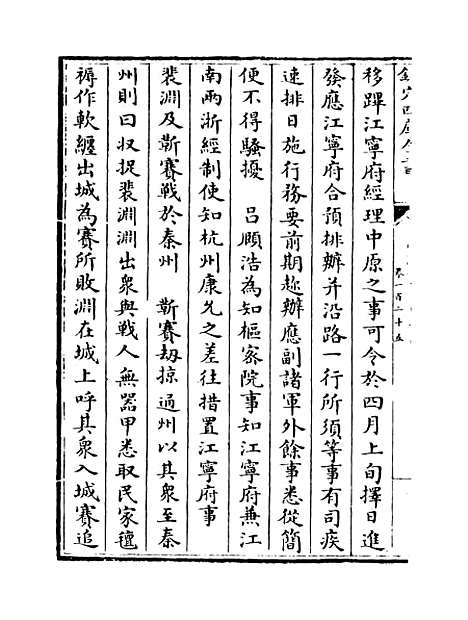 欽定四庫全書
卷一百二十五
移蹕江寧府經理中原之事可令於四月上旬擇日進
發應江寧府合預排辦并沿路一行所須等事有司疾
速排日施行務要前期趂辦應副諸軍外餘事悉從簡
便不得騷擾　吕頤浩為知樞密院事知江寧府兼江
南兩浙經制使知杭州康允之差往措置江寧府事
裴淵及靳賽戰於泰州　靳賽刼掠通州以其衆至泰
州則曰収捉裴淵淵出衆與戰人無器甲悉取民家氊
褥作軟纒出城為賽所敗淵在城上呼其衆入城賽追